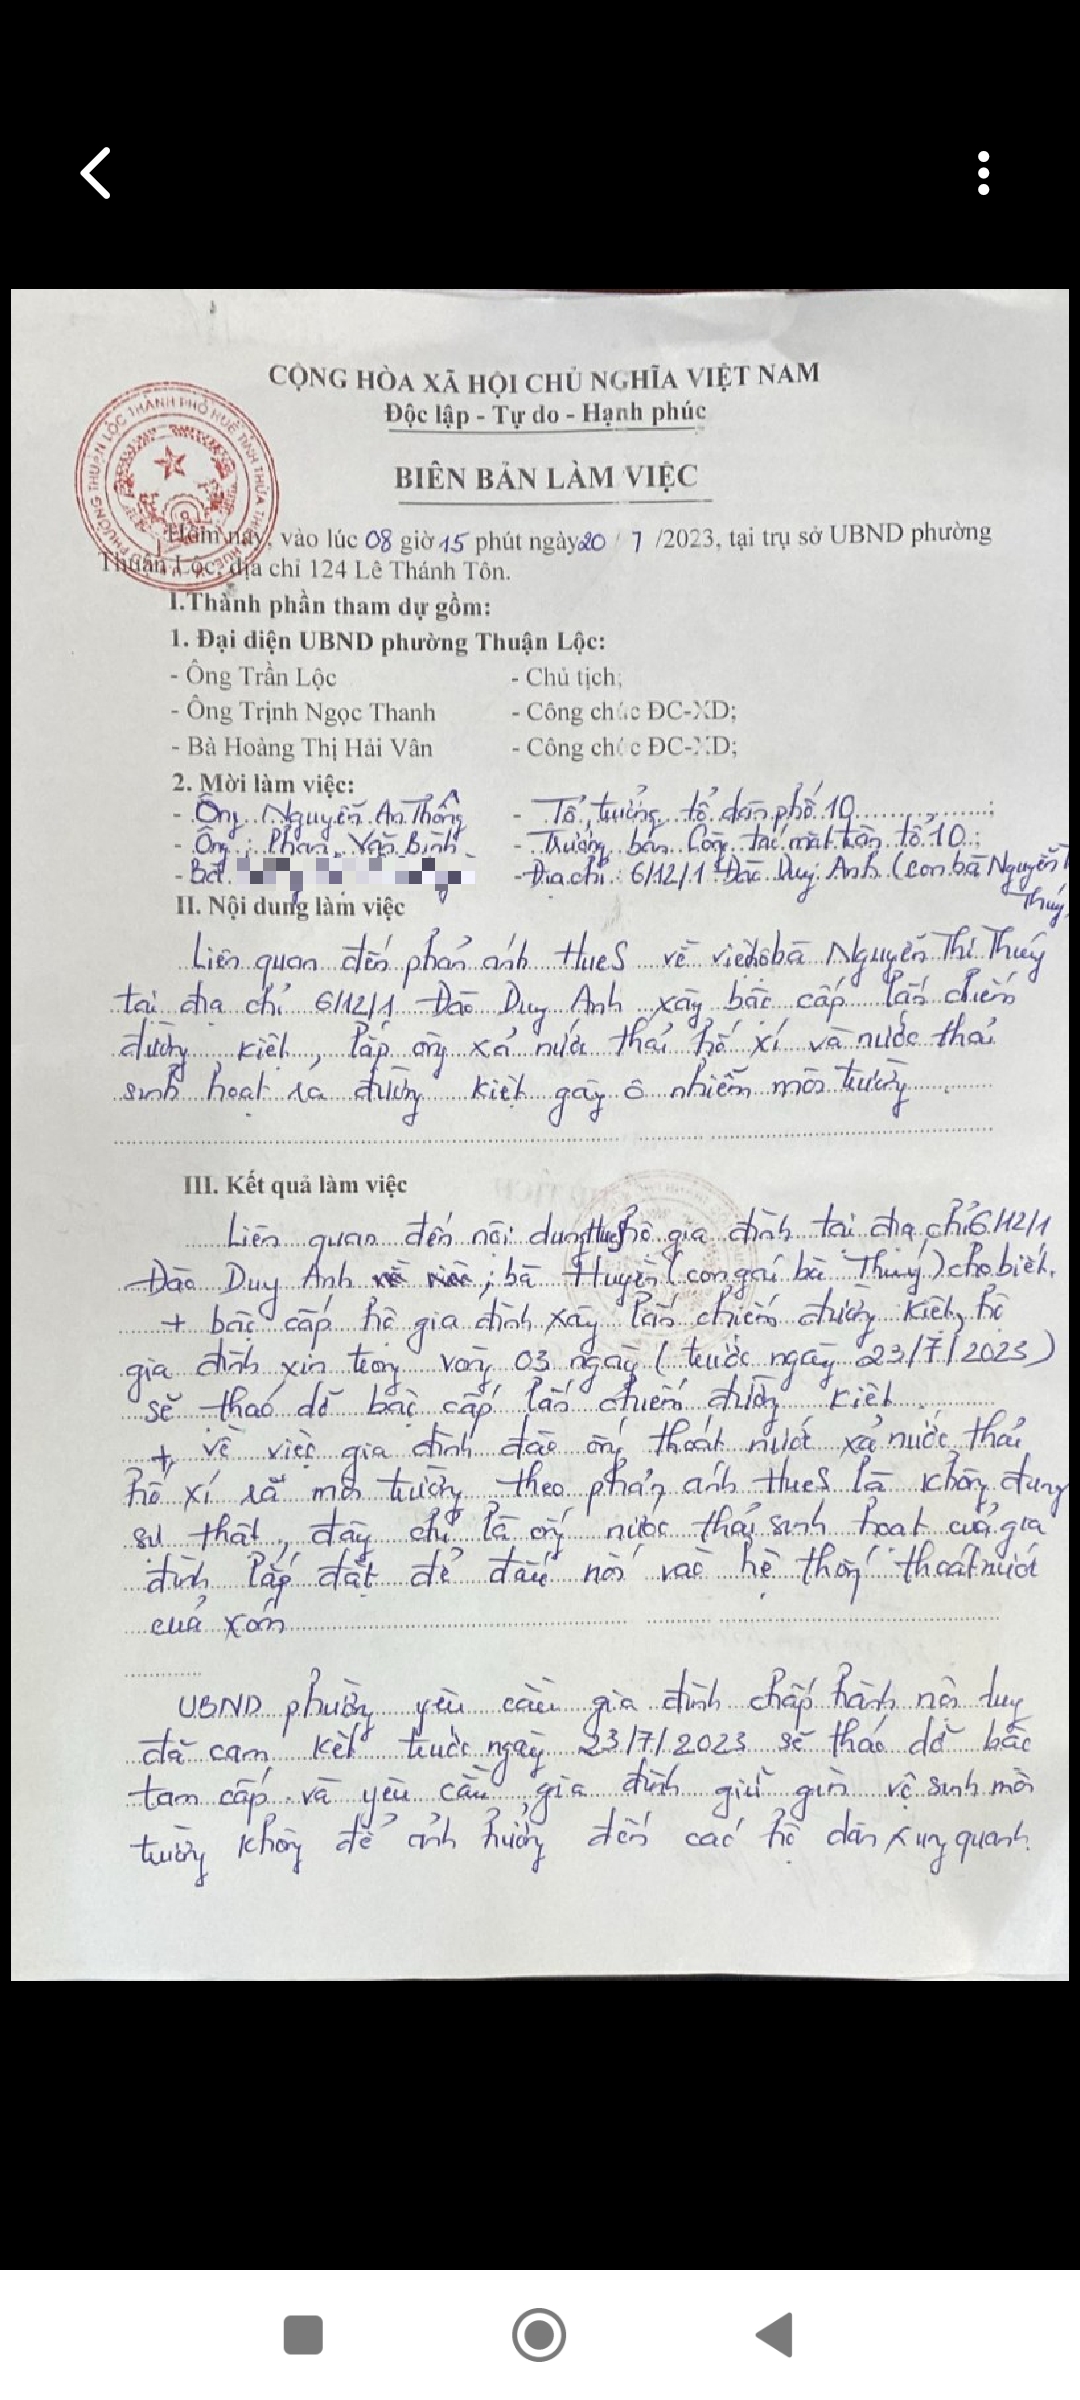 CỘNG HÒA XÃ HỘI CHỦ NGHĨA VIỆT NAM
Độc lập - Tự do - Hạnh phúc
BIÊN BẢN LÀM VIỆC
Hôm nay, vào lúc 08 giờ 15 phút ngày 20 / 7 /2023, tại trụ sở UBND phường
Thuận Lộc, địa chỉ 124 Lê Thánh Tôn.
I.Thành phần tham dự gồm:
1. Đại diện UBND phường Thuận Lộc:
- Ông Trần Lộc - Chủ tịch;
- Ông Trịnh Ngọc Thanh - Công chức ĐC-XD;
- Bà Hoàng Thị Hải Vân - Công chức ĐC-XD;
2. Mời làm việc:
- Ông Nguyễn An Thông - Tổ trưởng tổ dân phố 10 ;
- Ông: Phan Văn Bình - Trưởng ban Công tác mặt trận tổ 10 ;
- Bà - Địa chỉ: 6/12/1 Đào Duy Anh (con bà Nguyễn T
Thuý
II. Nội dung làm việc
Liên quan đến phản ánh HueS về việc bà Nguyễn Thị Thuý
tại địa chỉ 6/12/1 Đào Duy Anh xây bậc cấp lấn chiếm
đường kiệt, lắp ống xả nước thải hố xí và nước thải
sinh hoạt ra đường kiệt gây ô nhiễm môi trường
III. Kết quả làm việc
Liên quan đến nội dung hộ gia đình tại địa chỉ 6/12/1
Đào Duy Anh ; bà Huyền (con gái bà Thuý) cho biết.
+ bậc cấp hộ gia đình xây lấn chiếm đường kiệt, hộ
gia đình xin trong vòng 03 ngày (trước ngày 23/7/2023)
sẽ tháo dỡ bậc cấp lấn chiếm đường kiệt
+ về việc gia đình đào ống thoát nước xả nước thải
hố xí ra môi trường theo phản ánh HueS là không đúng
sự thật, đây chỉ là ống nước thải sinh hoạt của gia
đình lắp đặt để đấu nối vào hệ thống thoát nước
của xóm
UBND phường yêu cầu gia đình chấp hành nội dung
đã cam kết trước ngày 23/7/2023 sẽ tháo dỡ bậc
tam cấp và yêu cầu gia đình giữ gìn vệ sinh môi
trường không để ảnh hưởng đến các hộ dân xung quanh.